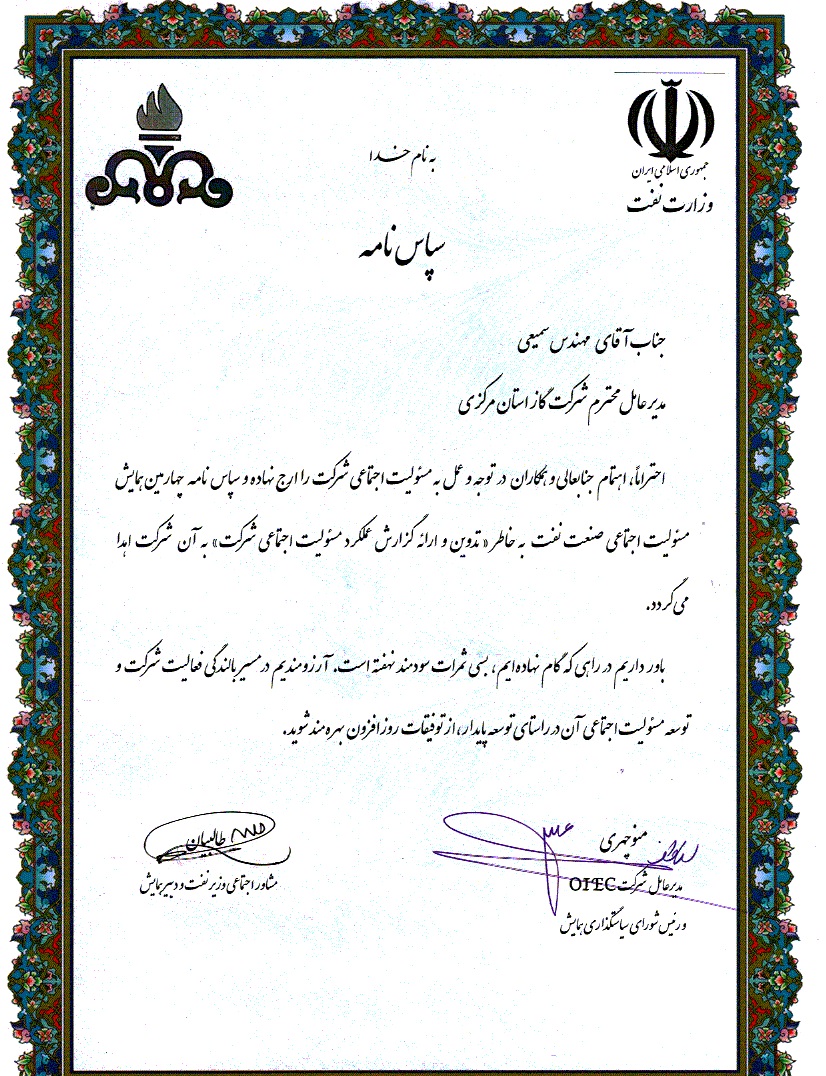 جمهوری اسلامی ایران
وزارت نفت
به نام خدا
سپاس نامه
جناب آقای مهندس سمیعی
مدیرعامل محترم شرکت گاز استان مرکزی
احتراماً، اهتمام جنابعالی و همکاران در توجه و عمل به مسئولیت اجتماعی شرکت را ارج نهاده و سپاس نامه چهارمین همایش
مسئولیت اجتماعی صنعت نفت به خاطر «تدوین و ارائه گزارش عملکرد مسئولیت اجتماعی شرکت» به آن شرکت اهدا
می گردد.
باور داریم در راهی که گام نهاده‌ایم، بسی ثمرات سودمند نهفته است. آرزومندیم در مسیر بالندگی فعالیت شرکت و
توسعه مسئولیت اجتماعی آن در راستای توسعه پایدار، از توفیقات روزافزون بهره مند شوید.
منوچهری
مدیرعامل شرکت OIEC
و رئیس شورای سیاستگذاری همایش
طالبیان
مشاور اجتماعی وزیر نفت و دبیر همایش